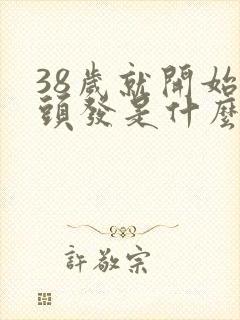 38歲就開始
頭發是什麼
許敬宗